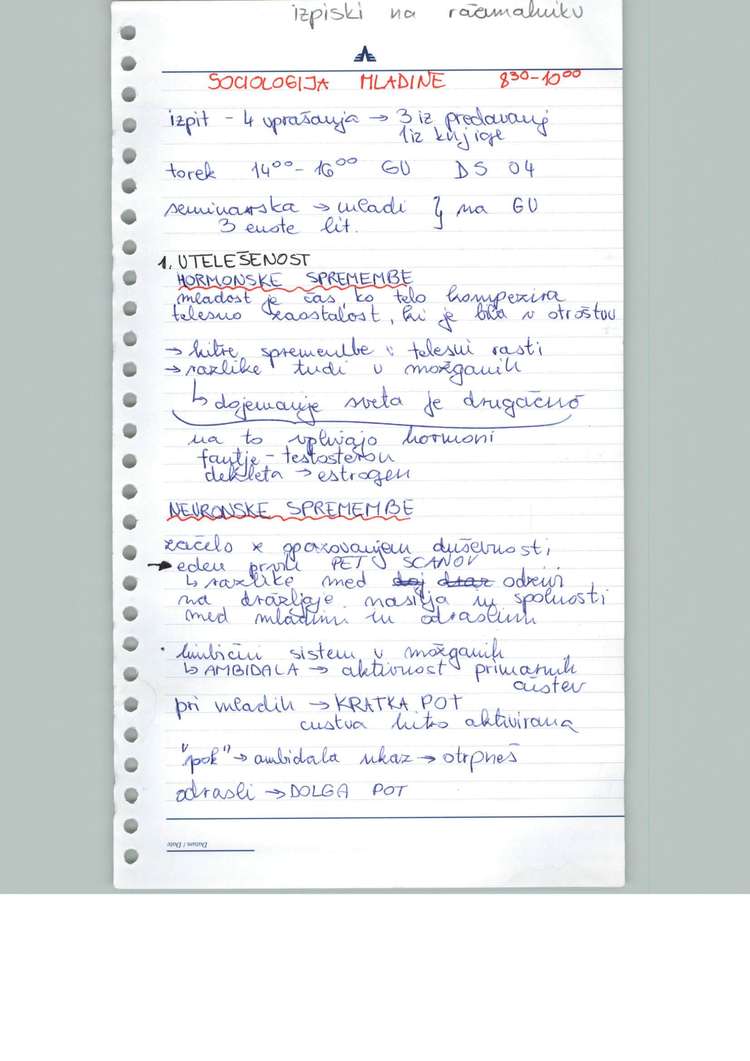 izpiski na računalniku
SOCIOLOGIJA MLADINE 8³⁰-10⁰⁰
izpit - 4 vprašanja → 3 iz predavanj
1 iz knjige
torek 14⁰⁰- 16⁰⁰ GU DS 04
seminarska → mladi } na GU
3 enote lit.
1. UTELEŠENOST
HORMONSKE SPREMEMBE
mladost je čas, ko telo kompenzira
telesno zaostalost, ki je bila v otroštvu
→ hitre spremembe v telesni rasti
→ razlike tudi v možganih
↳ dojemanje sveta je drugačno
na to vplivajo hormoni
fantje - testosteron
dekleta → estrogen
NEVRONSKE SPREMEMBE
začelo z opazovanjem duševnosti
→ eden prvih PET SCANOV
↳ razlike med odzivi
na dražljaje nasilja in spolnosti
med mladimi in odraslimi
• limbični sistem v možganih
↳ AMBIDALA → aktivnost primarnih
čustev
pri mladih → KRATKA POT
custva hitro aktivirana
"pok" → ambidala ukaz → otrpneš
odrasli → DOLGA POT
Datum / Date